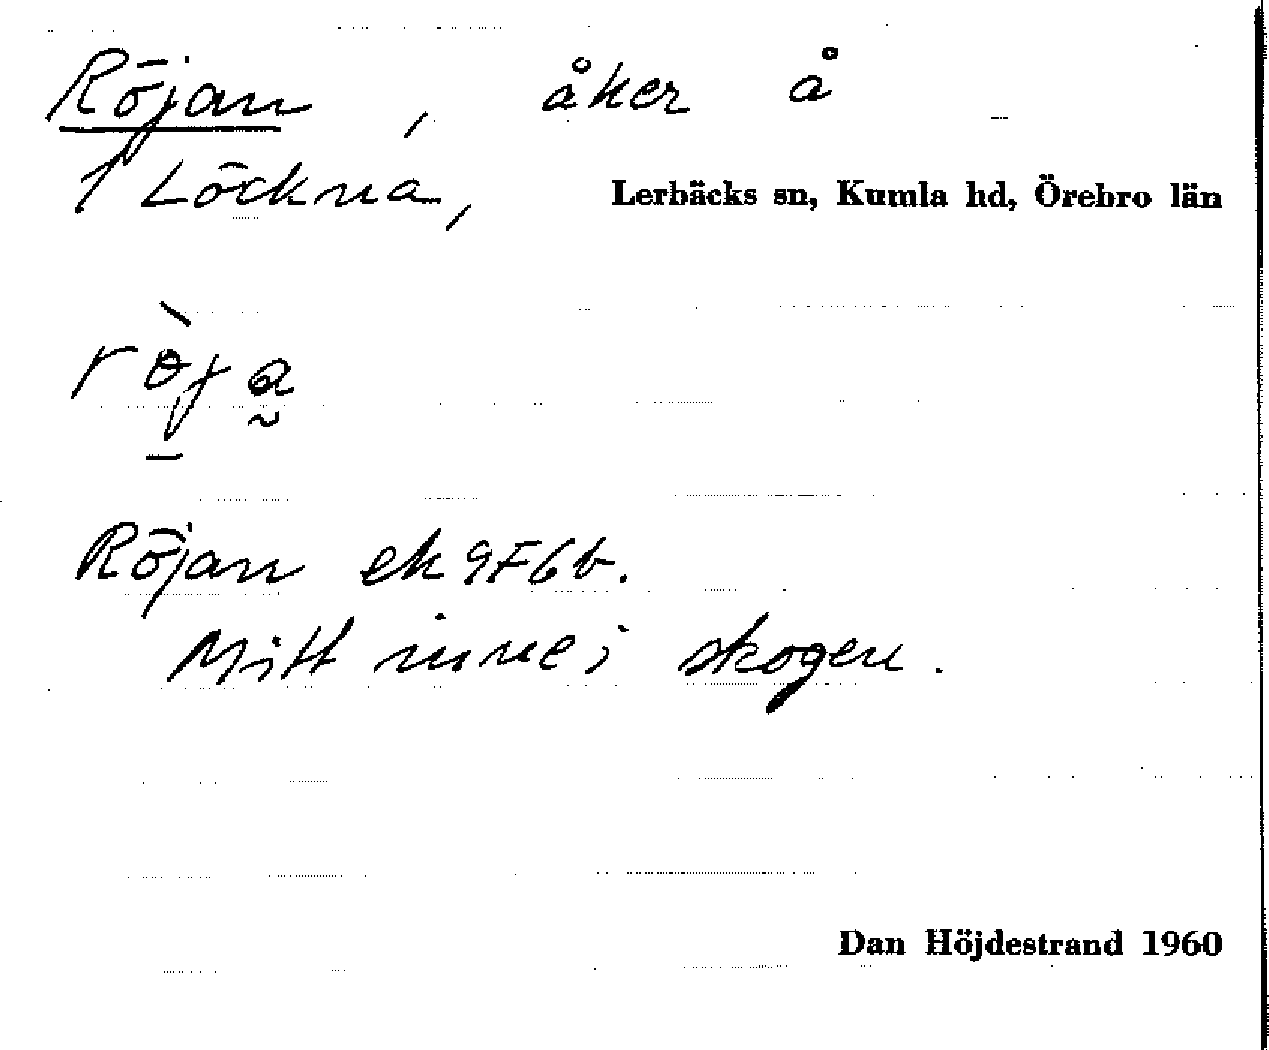 Röjan, åker å
1 Löckna, Lerbäcks sn, Kumla hd, Örebro län
röja
Röjan ek 9F6b.
Mitt inne i skogen.
Dan Höjdestrand 1960